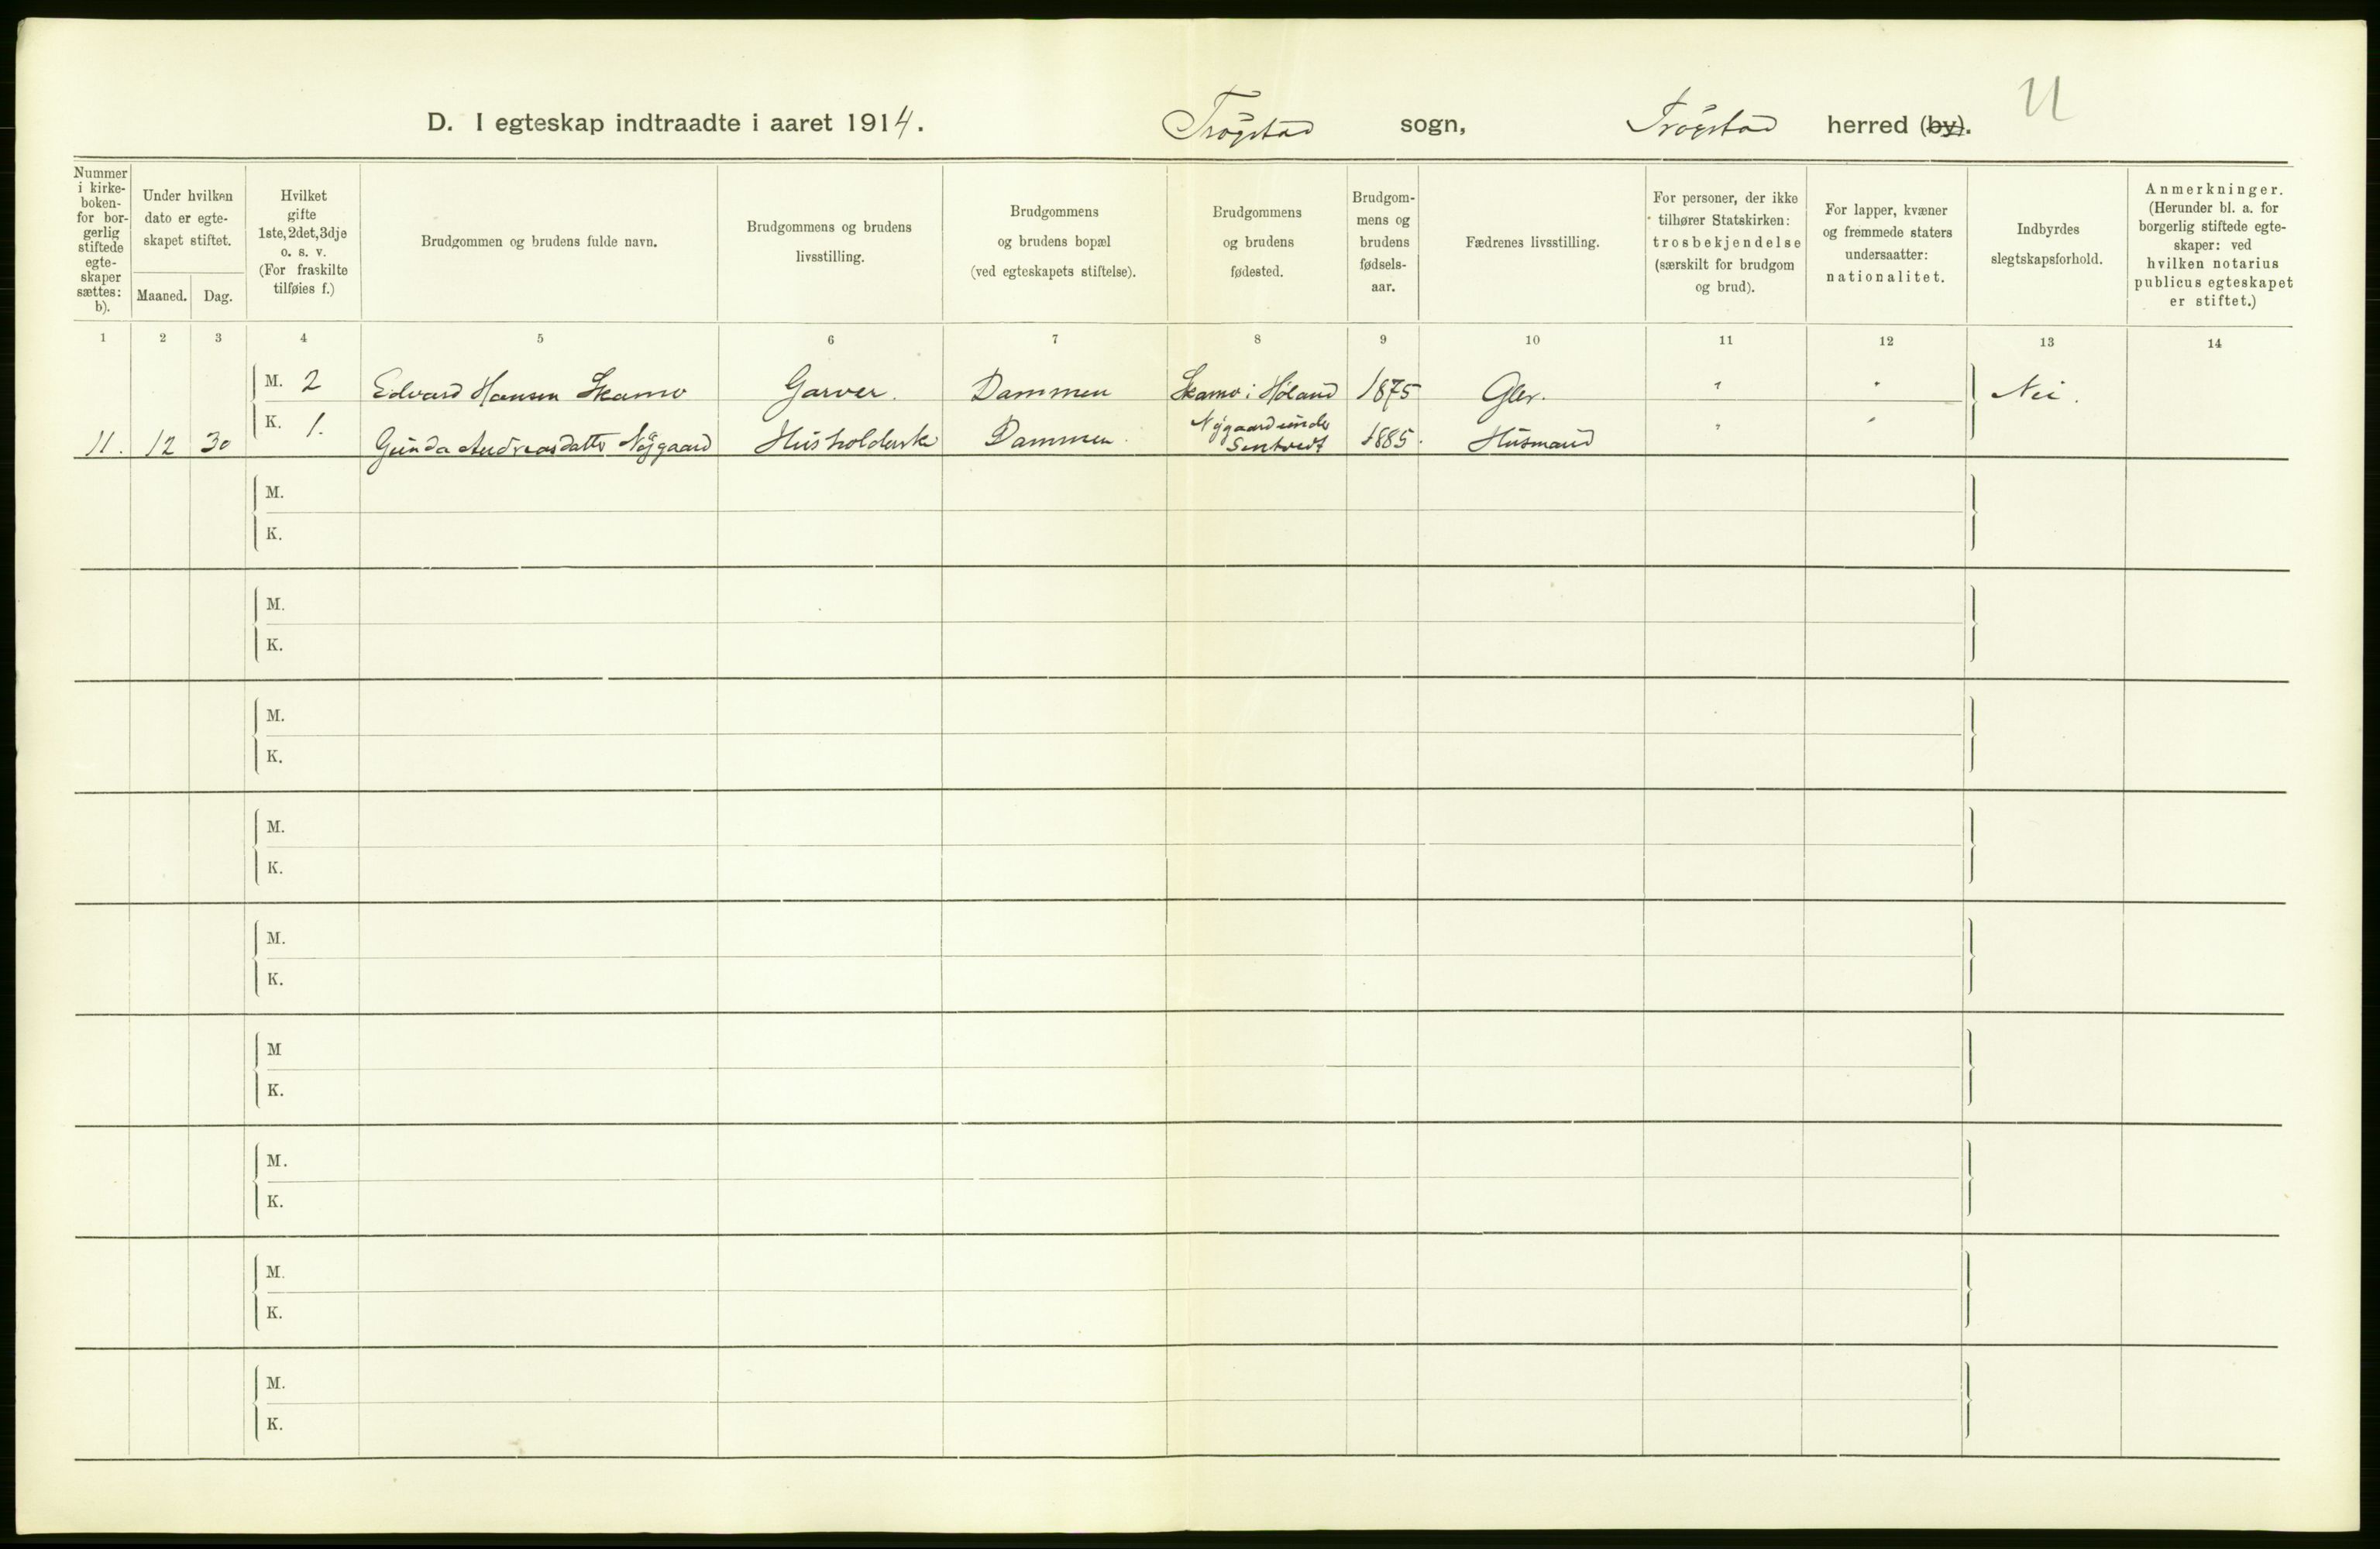 D. I egteskap indtraadte i aaret 1914. Trøgstad sogn, Trøgstad herred (by).
Nummer i kirke-boken- for bor-gerlig stiftede egte-skaper sættes: b).
Under hvilken dato er egte-skapet stiftet.
Maaned. Dag.
Hvilket gifte 1ste, 2det, 3dje o. s. v. (For fraskilte tilføies f.)
Brudgommen og brudens fulde navn.
Brudgommens og brudens livsstilling.
Brudgommens og brudens bopæl (ved egteskapets stiftelse).
Brudgommens og brudens fødested.
Brudgom-mens og brudens fødsels-aar.
Fædrenes livsstilling.
For personer, der ikke tilhører Statskirken: trosbekjendelse (særskilt for brudgom og brud).
For lapper, kvæner og fremmede staters undersaatter: nationalitet.
Indbyrdes slegtskapsforhold.
Anmerkninger. (Herunder bl. a. for borgerlig stiftede egte-skaper: ved hvilken notarius publicus egteskapet er stiftet.)
1 2 3 4 5 6 7 8 9 10 11 12 13 14
M. 2 Edvard Hansen Skamo Garver. Dammen Skamo i Høland 1875 Gbr. " " Nei.
11. 12 30 K. 1. Gunda Andreasdatter Nygaard Husholderske Dammen. Nygaard under 1885. Husmand " "
M.
K.
M.
K.
M.
K.
M.
K.
M.
K.
M
K.
M.
K.
M.
K.
M.
K.